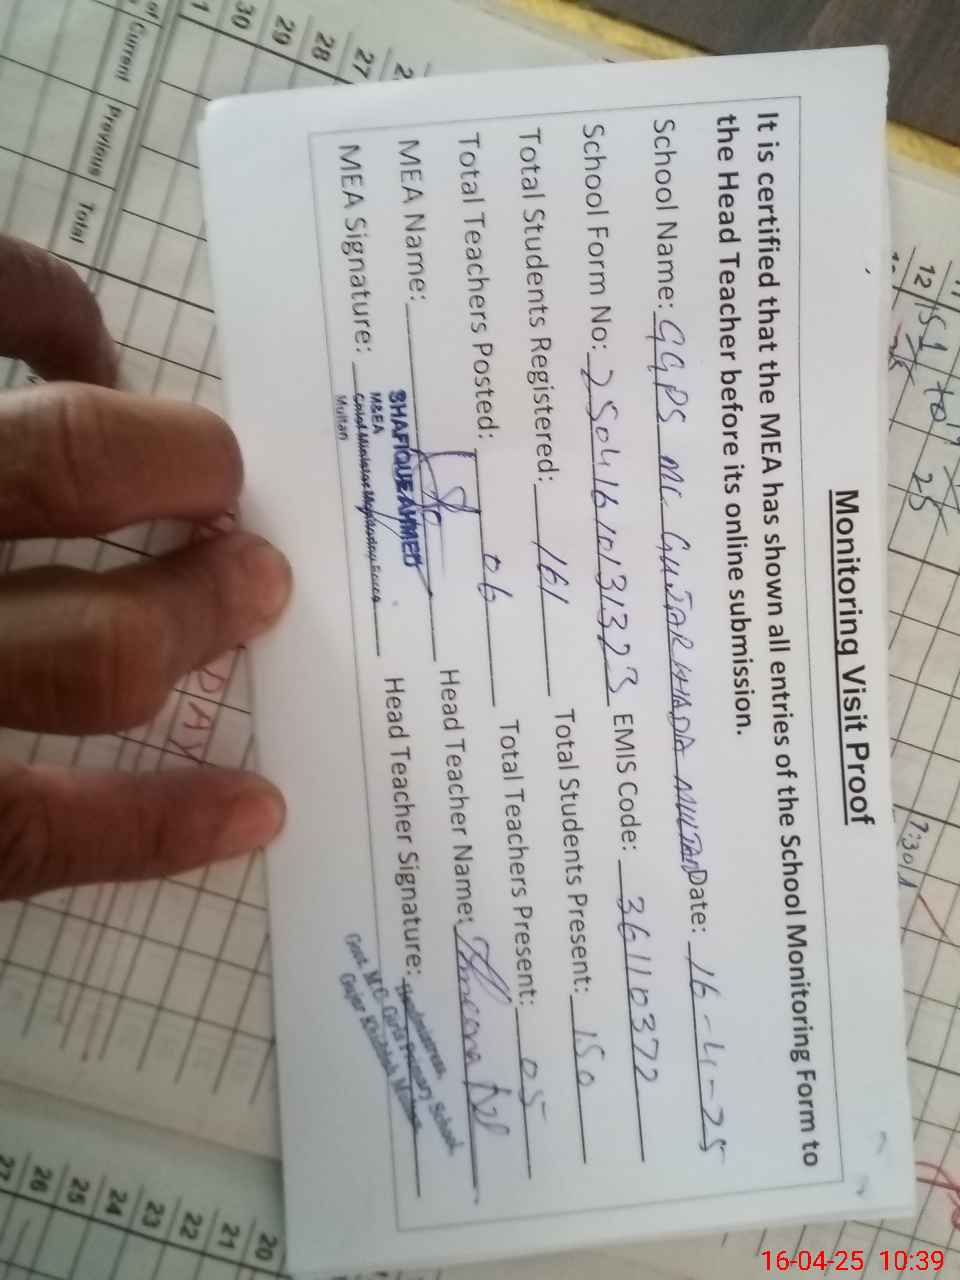 Monitoring Visit Proof
It is certified that the MEA has shown all entries of the School Monitoring Form to
the Head Teacher before its online submission.
School Name: GGPS MC GUJAR KHADA MULTAN Date: 16-4-25
School Form No: 2504161013132 EMIS Code: 36110372
Total Students Registered: 161 Total Students Present: 150
Total Teachers Posted: 06 Total Teachers Present: 05
MEA Name: Head Teacher Name:
SHAFIQUE AHMED
MEA Signature: Head Teacher Signature:
M&EA
Chief Minister Monitoring Force
Multan
Headmistress,
Govt. M.C. Girls Primary School
Gujar Khadda Multan
Current Previous Total
30
29
28
27
12
25
7:30
DAY
27
26
25
24
23
22
21
20
16-04-25 10:39